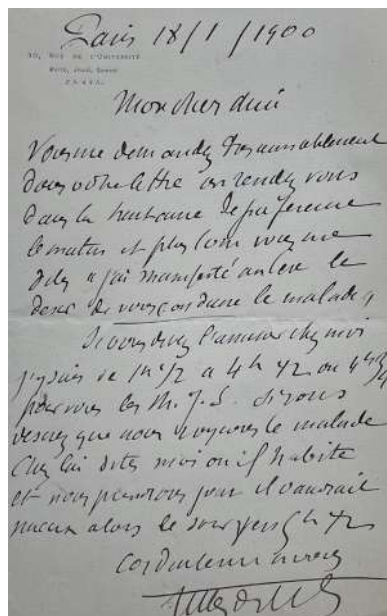 Paris 18/1/1900
10, RUE DE L'UNIVERSITÉ
Mardi, Jeudi, Samedi
PARIS.
Mon cher ami
Vous me demandez très aimablement
dans votre lettre un rendez vous
dans la huitaine de préférence
le matin et plus loin vous me
dites "j'ai manifesté le
désir de vous conduire le malade"
Si vous devez l'amener chez moi
j'y suis de 1h 1/2 à 4h 1/2 ou
pour vous les M. J. S. Si vous
désirez que nous voyions le malade
chez lui dites moi où il habite
et nous prendrons jour il vaudrait
mieux alors le soir vers 1/2
Cordialement